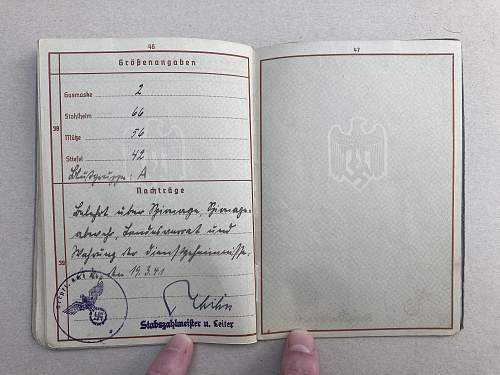 46
Größenangaben
Gasmaske 2
Stahlhelm 66
38
Mütze 56
Stiefel 42
Blutgruppe: A
Nachträge
Belehrt über Spionage, Spionage-
abwehr, Landesverrat und
Wahrung der Dienstgeheimnisse.
39
den 19.3.41
Stabszahlmeister u. Leiter
47